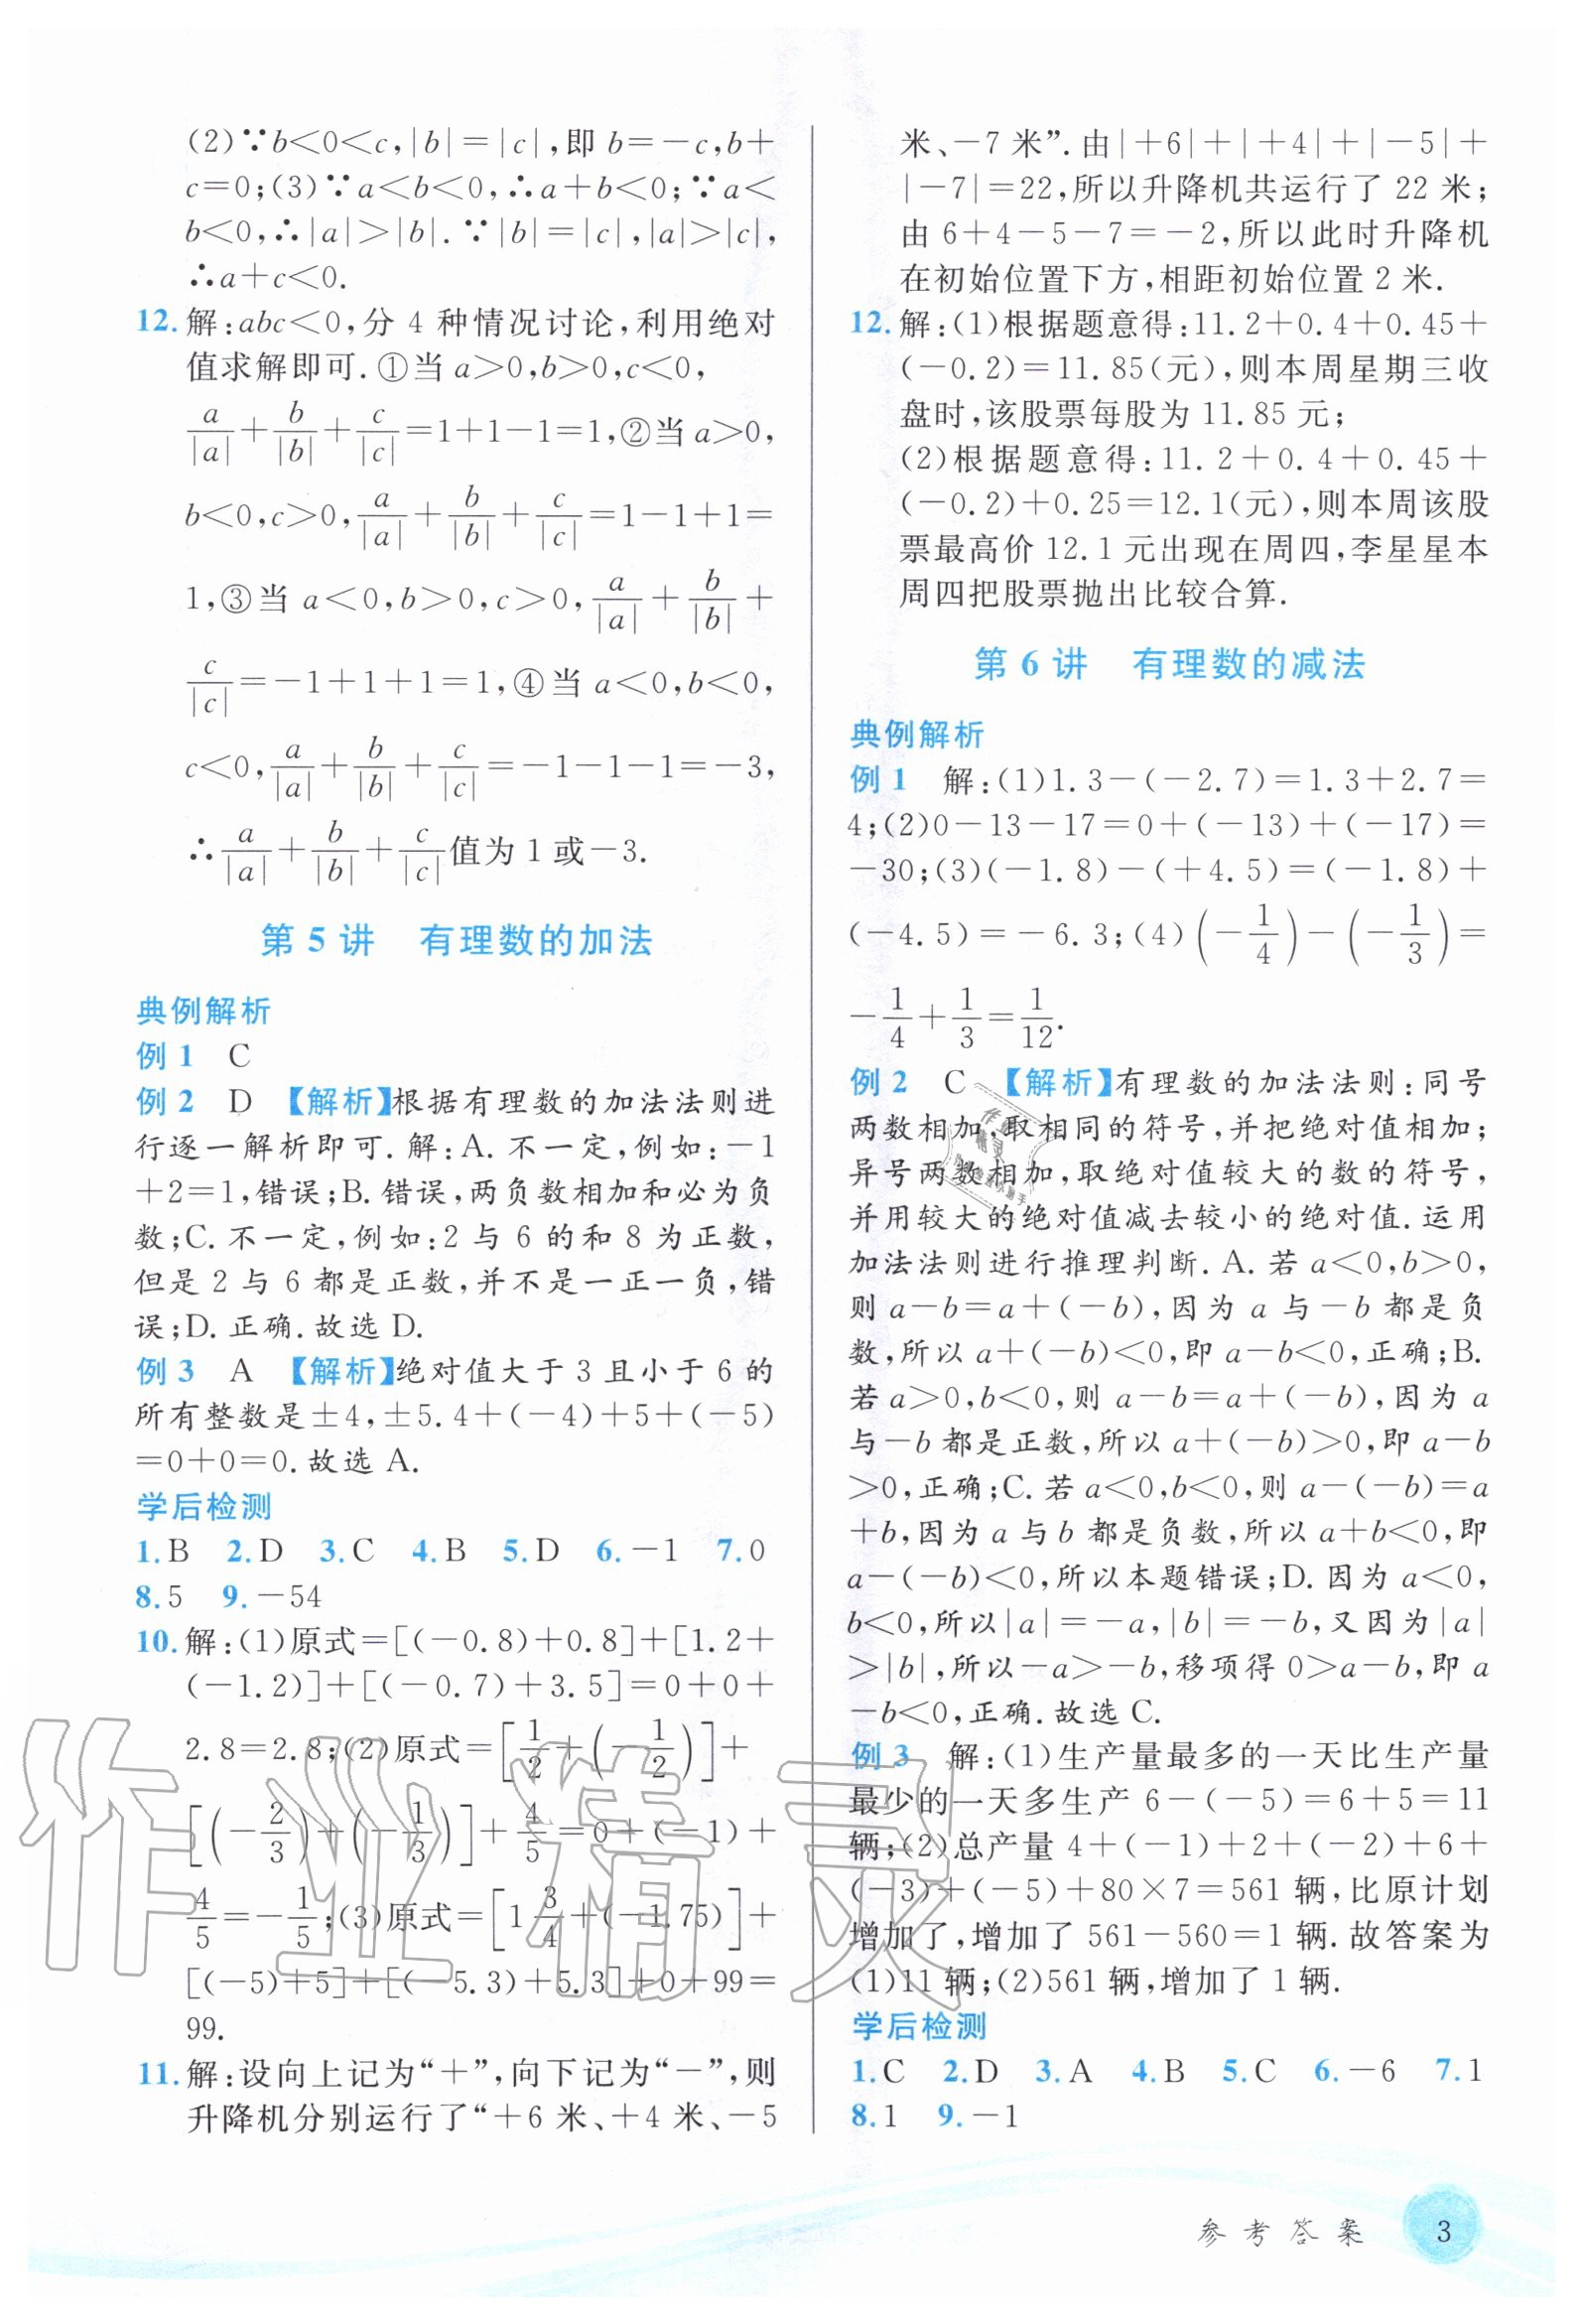 (2)∵b<0<c,|b|=|c|,即 b=-c,b+
c=0;(3)∵a<b<0,∴a+b<0;∵a<
b<0,∴|a|>|b|.∵|b|=|c|,|a|>|c|,
∴a+c<0.
12.解:abc<0,分 4 种情况讨论,利用绝对
值求解即可.①当 a>0,b>0,c<0,
a/|a|+b/|b|+c/|c|=1+1-1=1,②当 a>0,
b<0,c>0,a/|a|+b/|b|+c/|c|=1-1+1=
1,③当 a<0,b>0,c>0,a/|a|+b/|b|+
c/|c|=-1+1+1=1,④当 a<0,b<0,
c<0,a/|a|+b/|b|+c/|c|=-1-1-1=-3,
∴a/|a|+b/|b|+c/|c|值为 1 或-3.
第 5 讲 有理数的加法
典例解析
例 1 C
例 2 D 【解析】根据有理数的加法法则进
行逐一解析即可.解:A.不一定,例如:-1
+2=1,错误;B.错误,两负数相加和必为负
数;C.不一定,例如:2 与 6 的和 8 为正数,
但是 2 与 6 都是正数,并不是一正一负,错
误;D.正确.故选 D.
例 3 A 【解析】绝对值大于 3 且小于 6 的
所有整数是±4,±5.4+(-4)+5+(-5)
=0+0=0.故选 A.
学后检测
1.B 2.D 3.C 4.B 5.D 6.-1 7.0
8.5 9.-54
10.解:(1)原式=[(-0.8)+0.8]+[1.2+
(-1.2)]+[(-0.7)+3.5]=0+0+
2.8=2.8;(2)原式=[1/2+(-1/2)]+
[(-2/3)+(-1/3)]+4/5=0+(-1)+
4/5=-1/5;(3)原式=[1 3/4+(-1.75)]+
[(-5)+5]+[(-5.3)+5.3]+0+99=
99.
11.解:设向上记为“+”,向下记为“-”,则
升降机分别运行了“+6 米、+4 米、-5
米、-7 米”.由|+6|+|+4|+|-5|+
|-7|=22,所以升降机共运行了 22 米;
由 6+4-5-7=-2,所以此时升降机
在初始位置下方,相距初始位置 2 米.
12.解:(1)根据题意得:11.2+0.4+0.45+
(-0.2)=11.85(元),则本周星期三收
盘时,该股票每股为 11.85 元;
(2)根据题意得:11.2+0.4+0.45+
(-0.2)+0.25=12.1(元),则本周该股
票最高价 12.1 元出现在周四,李星星本
周四把股票抛出比较合算.
第 6 讲 有理数的减法
典例解析
例 1 解:(1)1.3-(-2.7)=1.3+2.7=
4;(2)0-13-17=0+(-13)+(-17)=
-30;(3)(-1.8)-(+4.5)=(-1.8)+
(-4.5)=-6.3;(4)(-1/4)-(-1/3)=
-1/4+1/3=1/12.
例 2 C 【解析】有理数的加法法则:同号
两数相加,取相同的符号,并把绝对值相加;
异号两数相加,取绝对值较大的数的符号,
并用较大的绝对值减去较小的绝对值.运用
加法法则进行推理判断.A.若 a<0,b>0,
则 a-b=a+(-b),因为 a 与-b 都是负
数,所以 a+(-b)<0,即 a-b<0,正确;B.
若 a>0,b<0,则 a-b=a+(-b),因为 a
与-b 都是正数,所以 a+(-b)>0,即 a-b
>0,正确;C.若 a<0,b<0,则 a-(-b)=a
+b,因为 a 与 b 都是负数,所以 a+b<0,即
a-(-b)<0,所以本题错误;D.因为 a<0,
b<0,所以|a|=-a,|b|=-b,又因为|a|
>|b|,所以-a>-b,移项得 0>a-b,即 a
-b<0,正确.故选 C.
例 3 解:(1)生产量最多的一天比生产量
最少的一天多生产 6-(-5)=6+5=11
辆;(2)总产量 4+(-1)+2+(-2)+6+
(-3)+(-5)+80×7=561 辆,比原计划
增加了,增加了 561-560=1 辆.故答案为
(1)11 辆;(2)561 辆,增加了 1 辆.
学后检测
1.C 2.D 3.A 4.B 5.C 6.-6 7.1
8.1 9.-1
作业精灵
参考答案 3